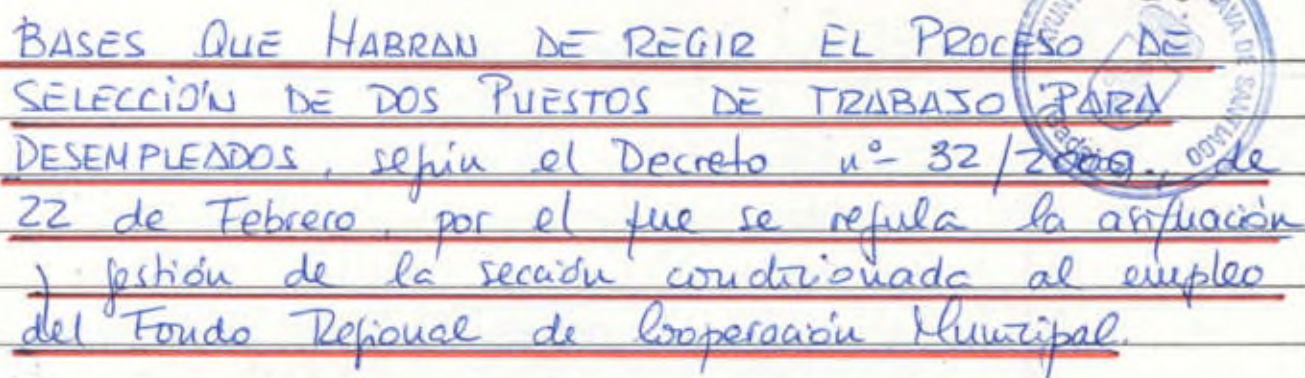 BASES QUE HABRAN DE REGIR EL PROCESO DE
SELECCIÓN DE DOS PUESTOS DE TRABAJO PARA
DESEMPLEADOS, según el Decreto nº 32/2000., de
22 de Febrero, por el que se regula la asignación
y gestión de la sección condicionada al empleo
del Fondo Regional de Cooperación Municipal.
AVA DE SANTIAGO